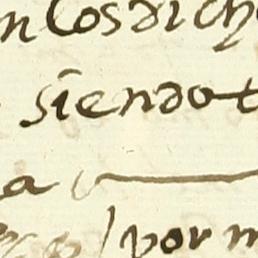 n los dich
siendo t
a
por m